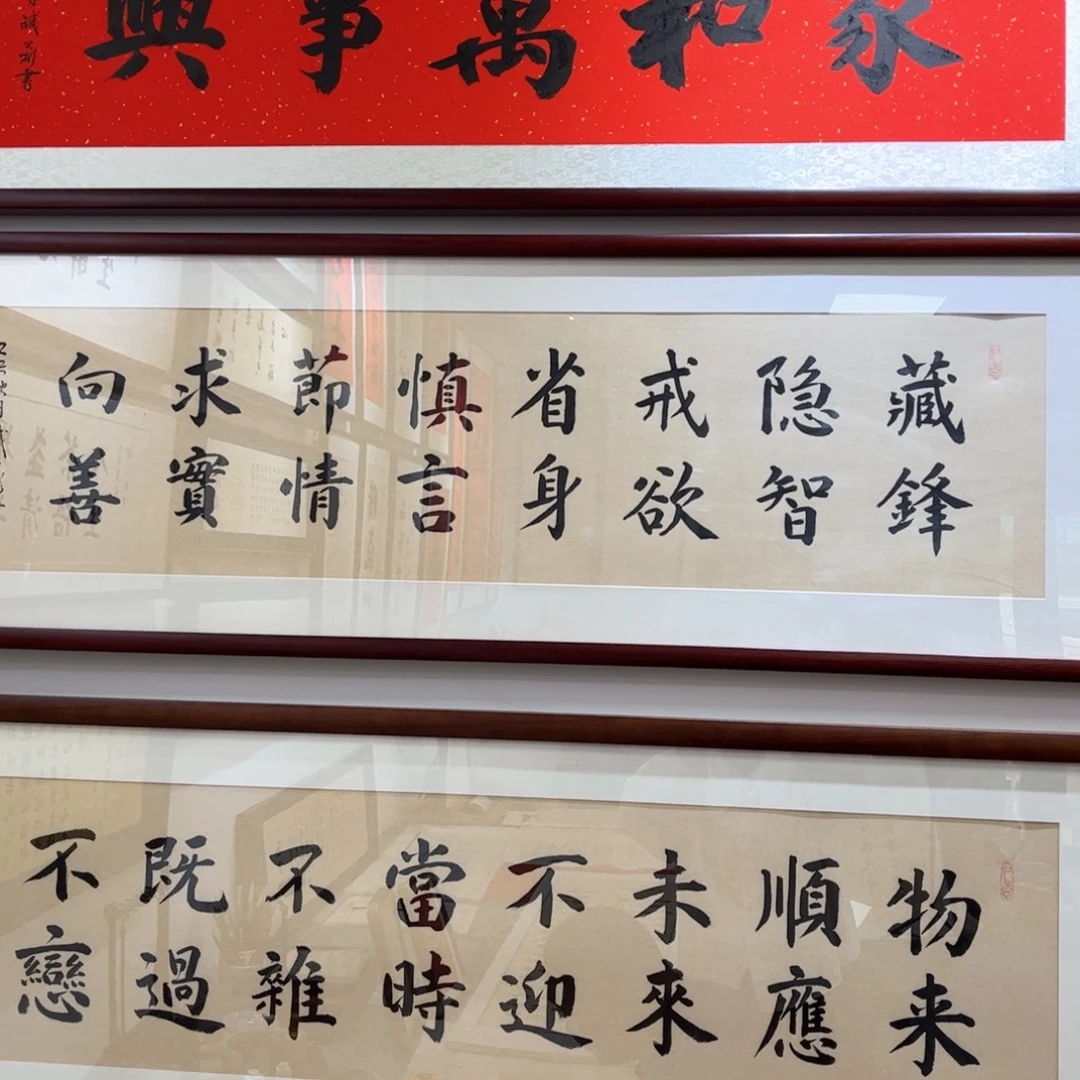 家和萬事興
藏鋒
隐智
戒欲
省身
慎言
節情
求實
向善
物来
順應
未來
不迎
當時
不雜
既過
不戀